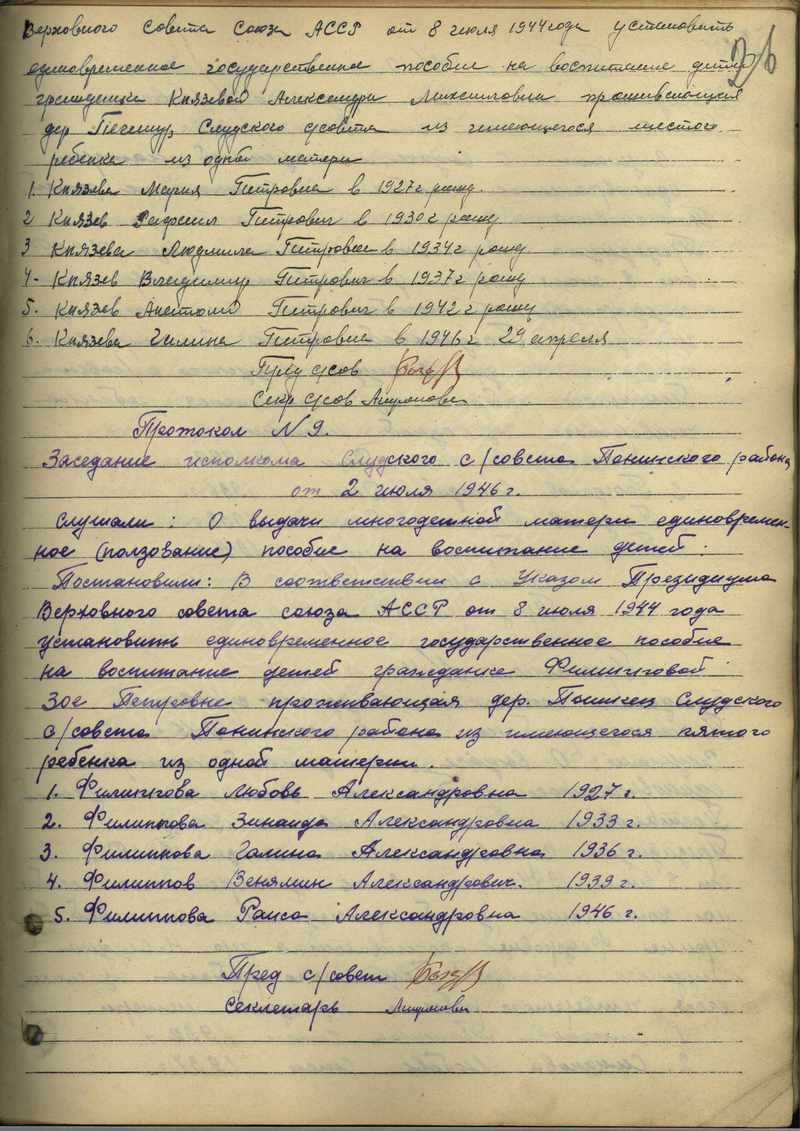 Верховного Совета Союза АССР от 8 июля 1944 года установить
26
единовременное государственное пособие на воспитание детей
гражданки Князевой Александри Михаиловни проживающия
дер Слудского с/совета из имеющегося шестого
ребенка из одной матери
1. Князева Мария Петровна в 1927 г рожд.
2 Князев Рафаил Петрович в 1930 г рожд
3 Князева Людмила Петровна в 1934 г рожд
4. Князев Владимир Петрович в 1937 г рожд
5. Князев Анатолий Петрович в 1942 г рожд
6. Князева Галина Петровна в 1946 г 29 апреля
Пред с/сов
Секр с/сов
Протокол № 9.
Заседание исполкома Слудского с/совета Тонинского района
от 2 июля 1946 г.
Слушали: О выдачи многодетной матери единовремен-
ное (ползование) пособие на воспитание детей:
Постановили: В соответствии с Указом Президиума
Верховного совета союза АССР от 8 июля 1944 года
установить единовременное государственное пособие
на воспитание детей гражданке Филипповой
Зое Петровне проживающая дер. Слудского
с/совета Тонинского района из имеющегося пятого
ребенка из одной матери.
1. Филиппова Любовь Александровна 1927 г.
2. Филиппова Зинаида Александровна 1933 г.
3. Филиппова Галина Александровна 1936 г.
4. Филиппов Венямин Александрович. 1939 г.
5. Филиппова Раиса Александровна 1946 г.
Пред с/совет
Секлетарь